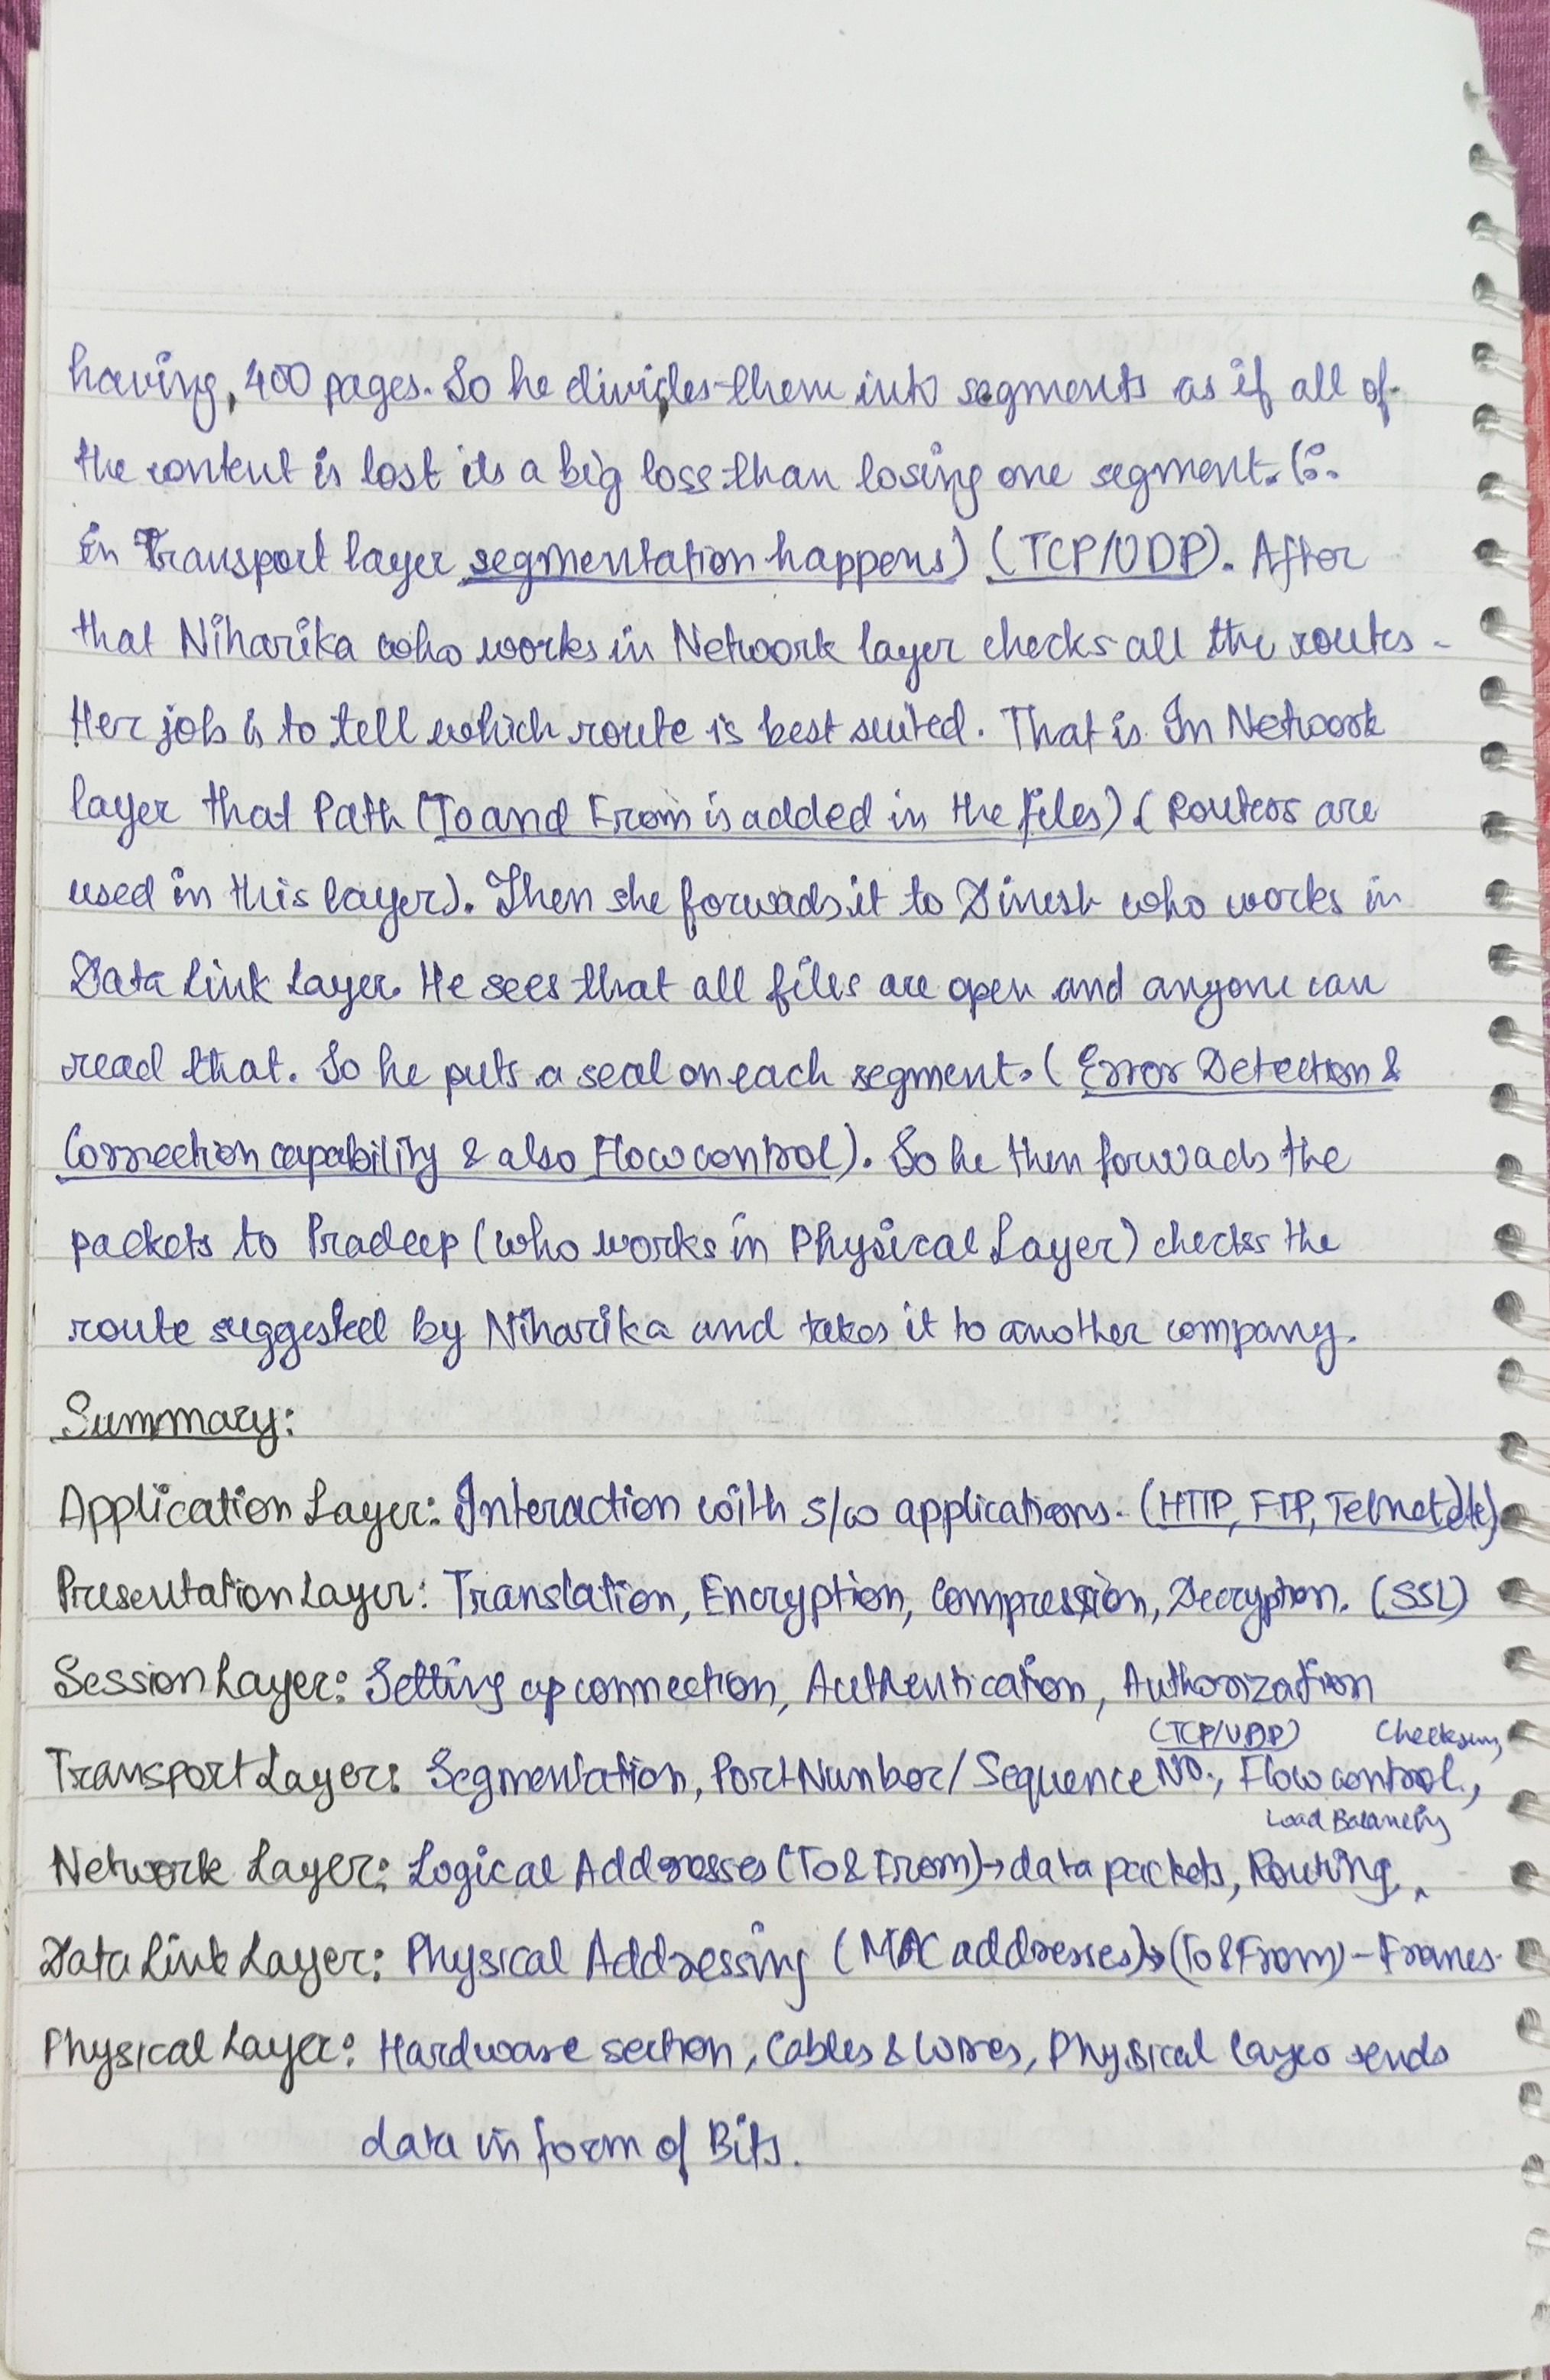 having, 400 pages. So he divides them into segments as if all of
the content is lost its a big loss than losing one segment. (∵
in Transport layer segmentation happens) (TCP/UDP). After
that Niharika who works in Network layer checks all the routes -
Her job is to tell which route is best suited. That is In Network
layer that Path (To and From is added in the files) (Routers are
used in this layer). Then she forwads it to Dinesh who works in
Data Link Layer. He sees that all files are open and anyone can
read that. So he puts a seal on each segment. (Error Detection &
Correction capability & also Flow control). So he then forwads the
packets to Pradeep (who works in Physical Layer) checks the
route suggested by Niharika and takes it to another company.
Summary:
Application Layer: Interaction with s/w applications. (HTTP, FTP, Telnet etc)
Presentation Layer: Translation, Encryption, Compression, Decryption. (SSL)
Session Layer: Setting up connection, Authentication, Authorization
(TCP/UDP) Checksum,
Transport Layer: Segmentation, Port Number/Sequence NO., Flow control,
Load Balancing
Network Layer: Logical Addresses (To & From) → data packets, Routing,
Data Link Layer: Physical Addressing (MAC addresses) → (To & From) - Frames.
Physical Layer: Hardware section, Cables & Wires, Physical layer sends
data in form of Bits.